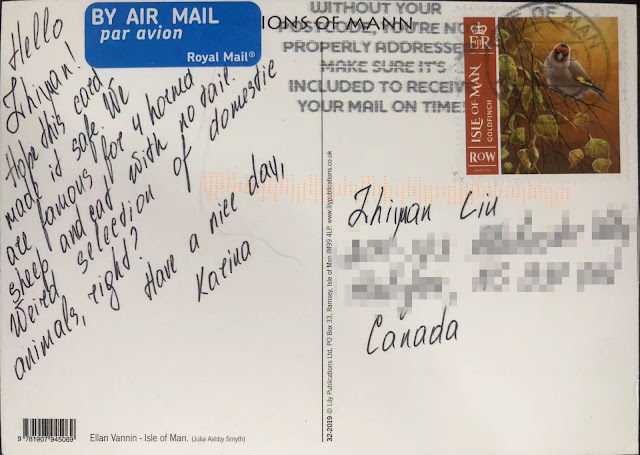 BY AIR MAIL
par avion
Royal Mail®
IONS OF MANN
WITHOUT YOUR
POSTCODE, YOU'RE NOT
PROPERLY ADDRESSED
MAKE SURE IT'S
INCLUDED TO RECEIVE
YOUR MAIL ON TIME!
OF MAN
ER
ISLE OF MAN
GOLDFINCH
ROW
Hello
Zhiman!
Hope this card
made it safe. We
are famous for 4 horned
sheep and cat with no tail.
Weird selection of domestic
animals, right?
Have a nice day,
Karina
Zhiman Liu
Canada
32-2019 © Lily Publications Ltd, PO Box 33, Ramsey, Isle of Man IM99 4LP. www.lilypublications.co.uk
9 781907 945069
Ellan Vannin - Isle of Man. (Julia Ashby Smyth)